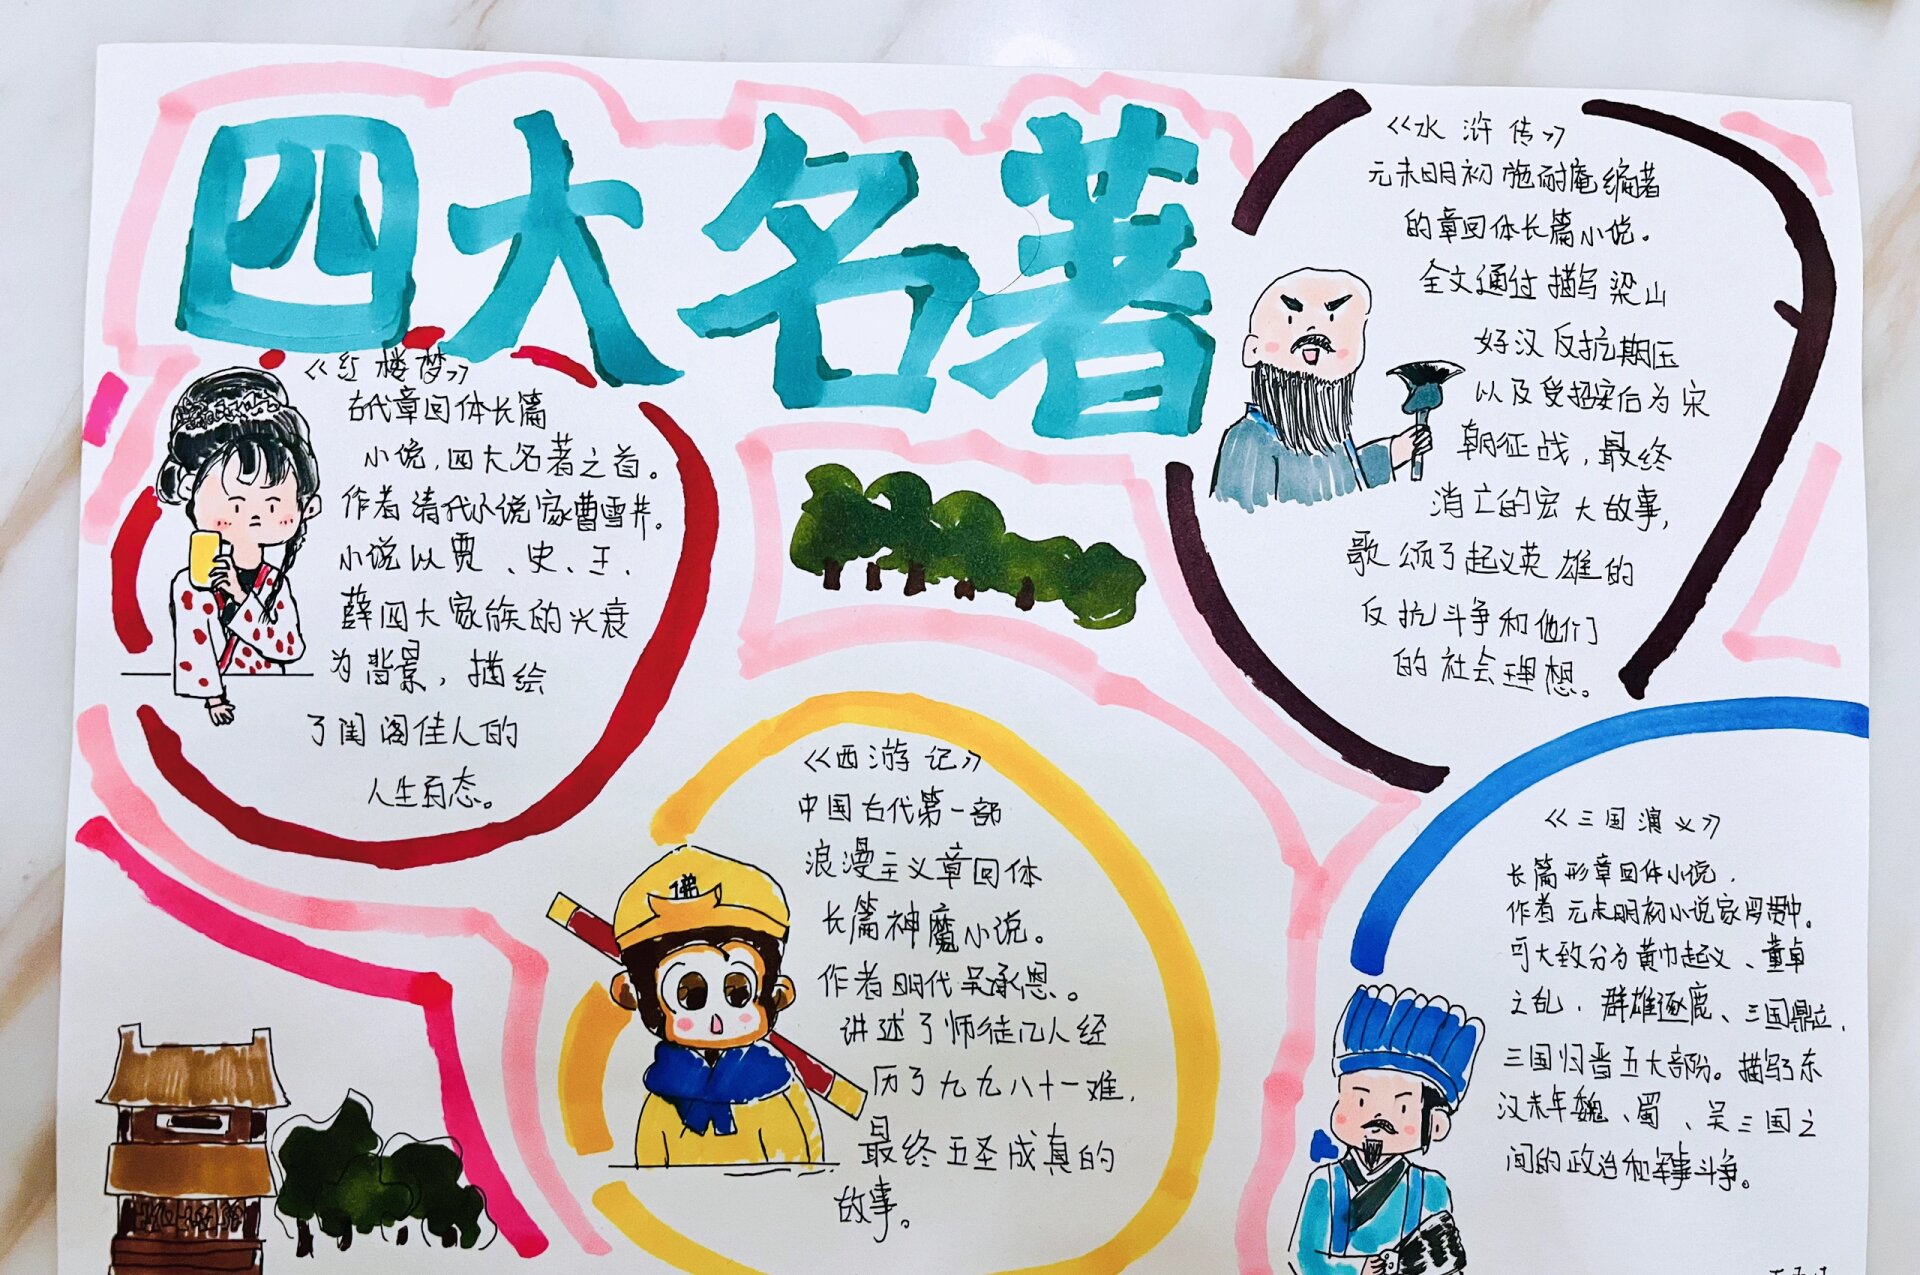 四大名著
《红楼梦》
古代章回体长篇
小说,四大名著之首。
作者清代小说家曹雪芹。
小说以贾、史、王、
薛四大家族的兴衰
为背景,描绘
了闺阁佳人的
人生百态。
《水浒传》
元末明初施耐庵编著
的章回体长篇小说。
全文通过描写梁山
好汉反抗期压
以及受招安后为宋
朝征战,最终
消亡的宏大故事,
歌颂了起义英雄的
反抗斗争和他们
的社会理想。
《西游记》
中国古代第一部
浪漫主义章回体
长篇神魔小说。
作者明代吴承恩。
讲述了师徒几人经
历了九九八十一难,
最终五圣成真的
故事。
佛
《三国演义》
长篇形章回体小说,
作者元末明初小说家罗贯中。
可大致分为黄巾起义、董卓
之乱、群雄逐鹿、三国鼎立,
三国归晋五大部份。描写了东
汉末年魏、蜀、吴三国之
间的政治和军事斗争。